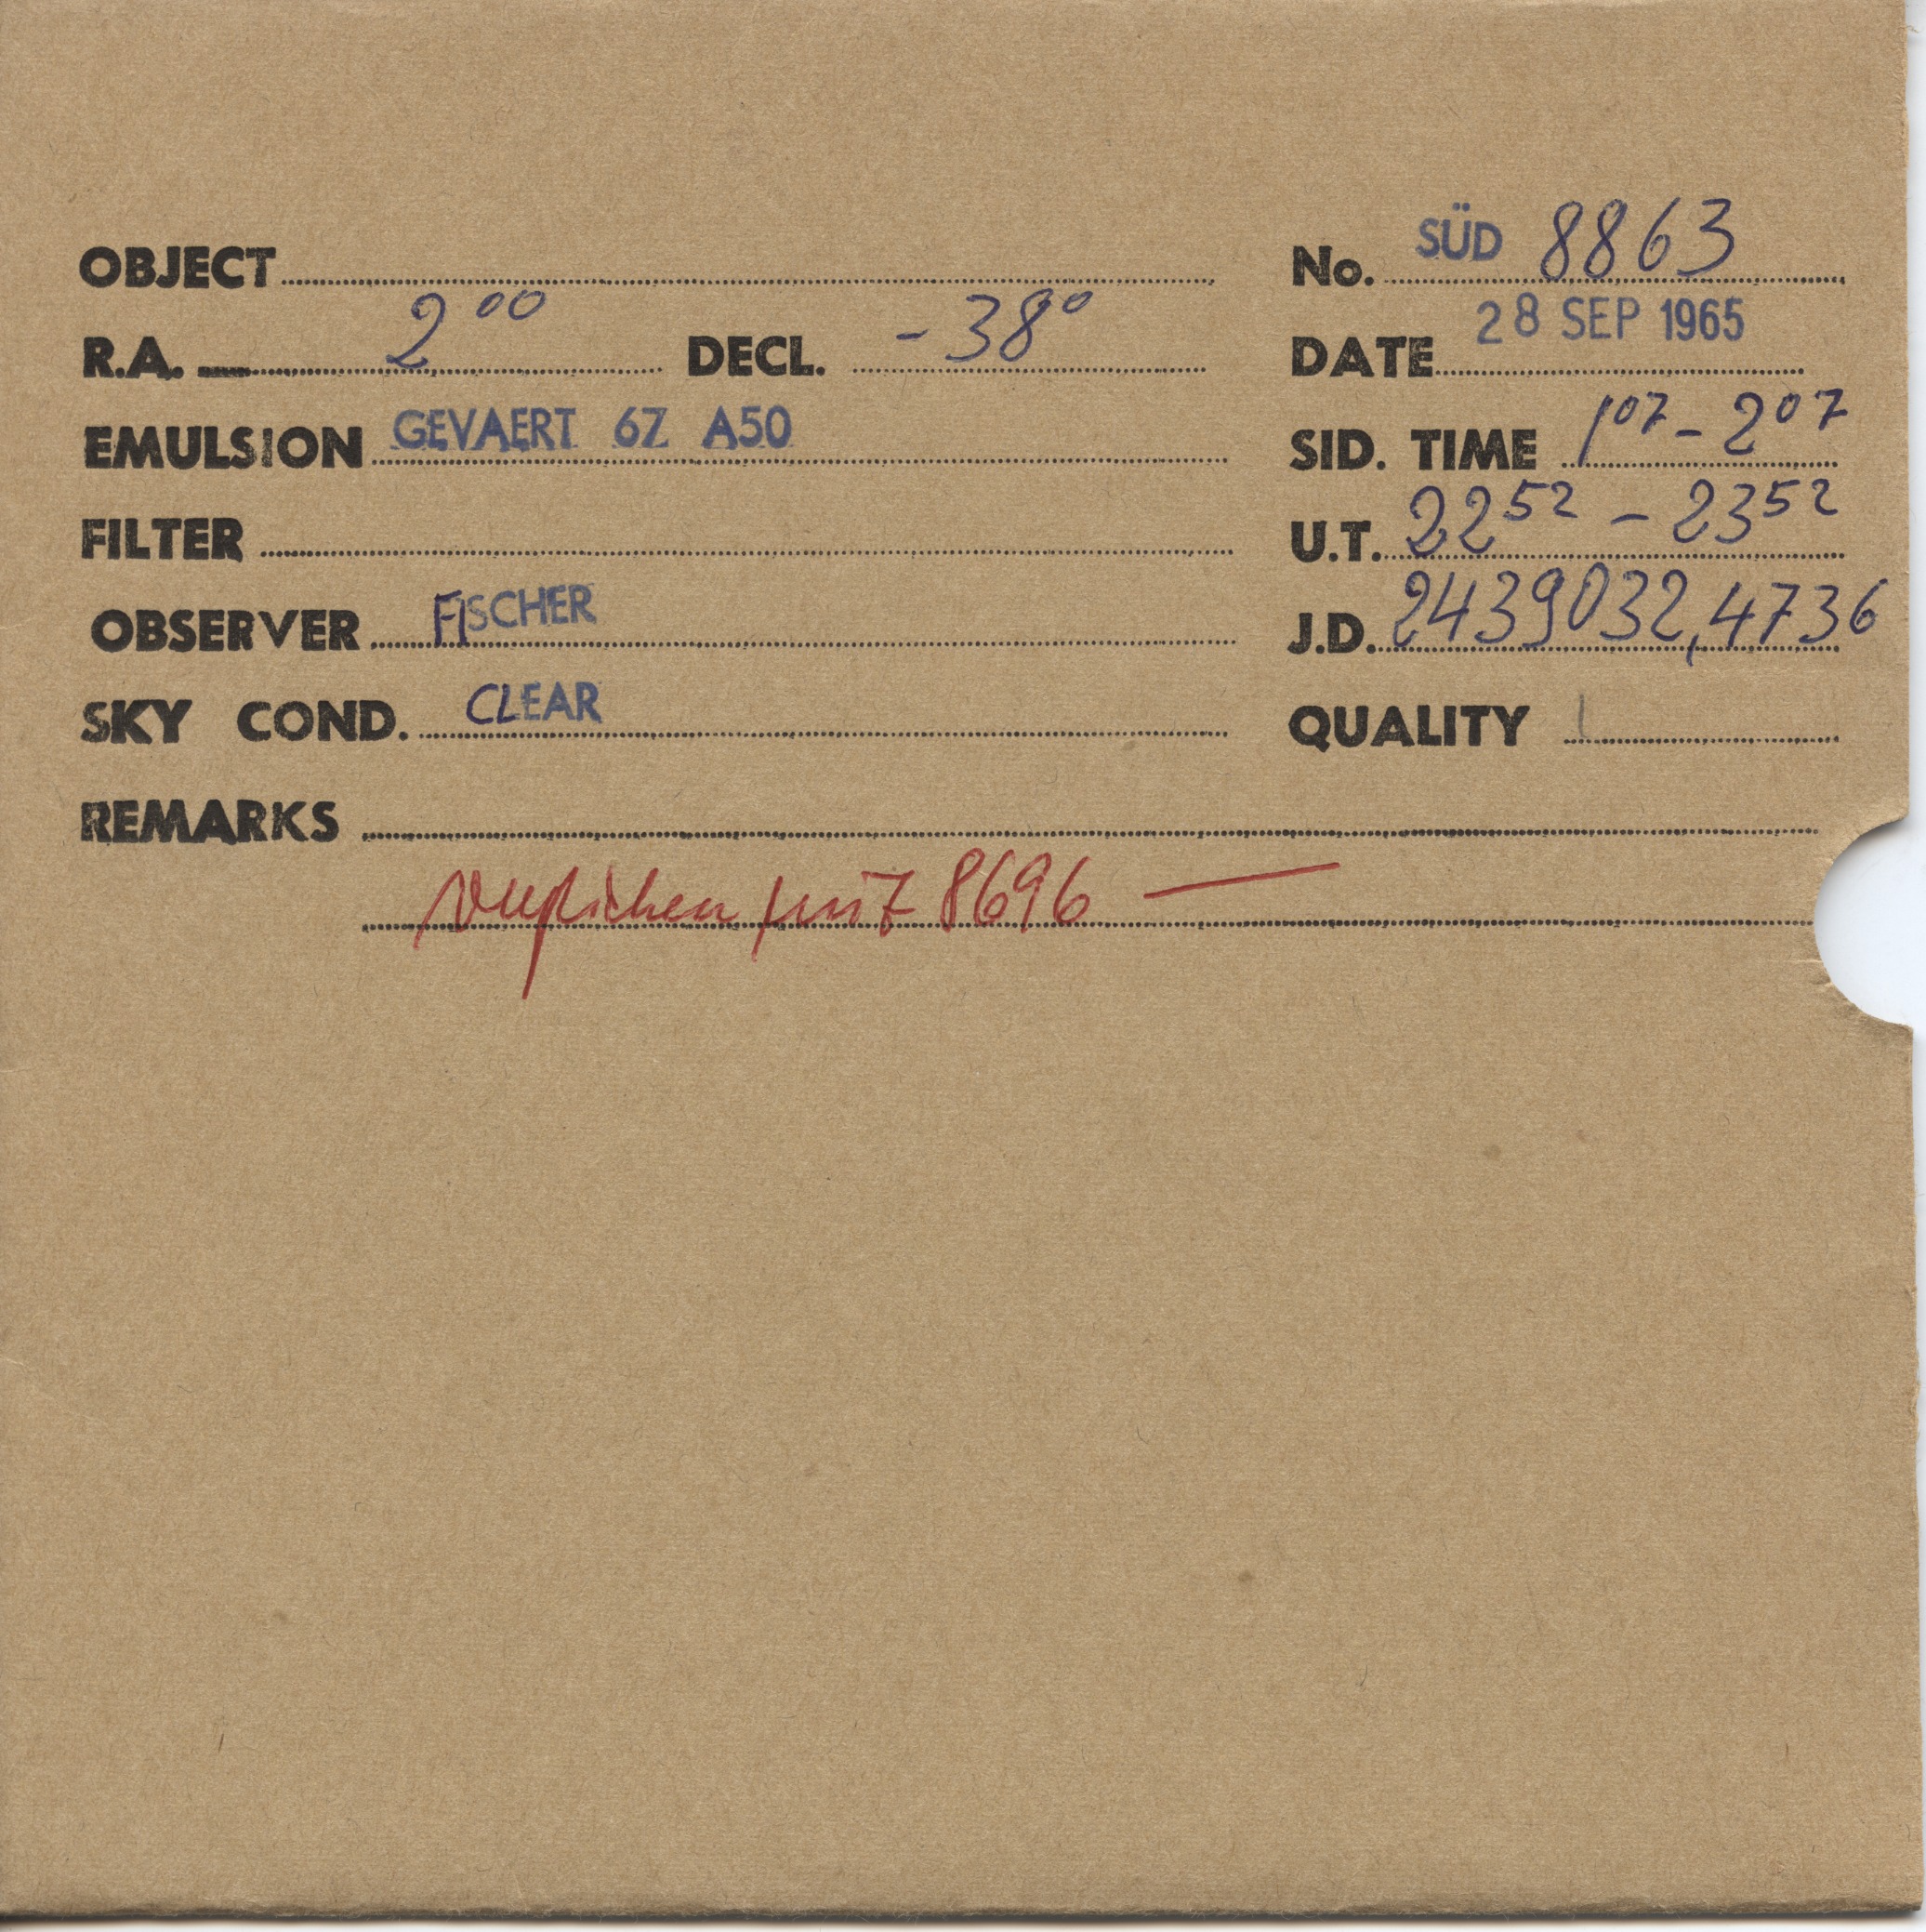 OBJECT No. SÜD 8863
R.A. 2⁰⁰ DECL. -38° DATE 28 SEP 1965
EMULSION GEVAERT 6Z A50 SID. TIME 1⁰⁷ - 2⁰⁷
FILTER U.T. 22⁵² - 23⁵²
OBSERVER FISCHER J.D. 2439032,4736
SKY COND. CLEAR QUALITY 1
REMARKS
verglichen mit 8696 —